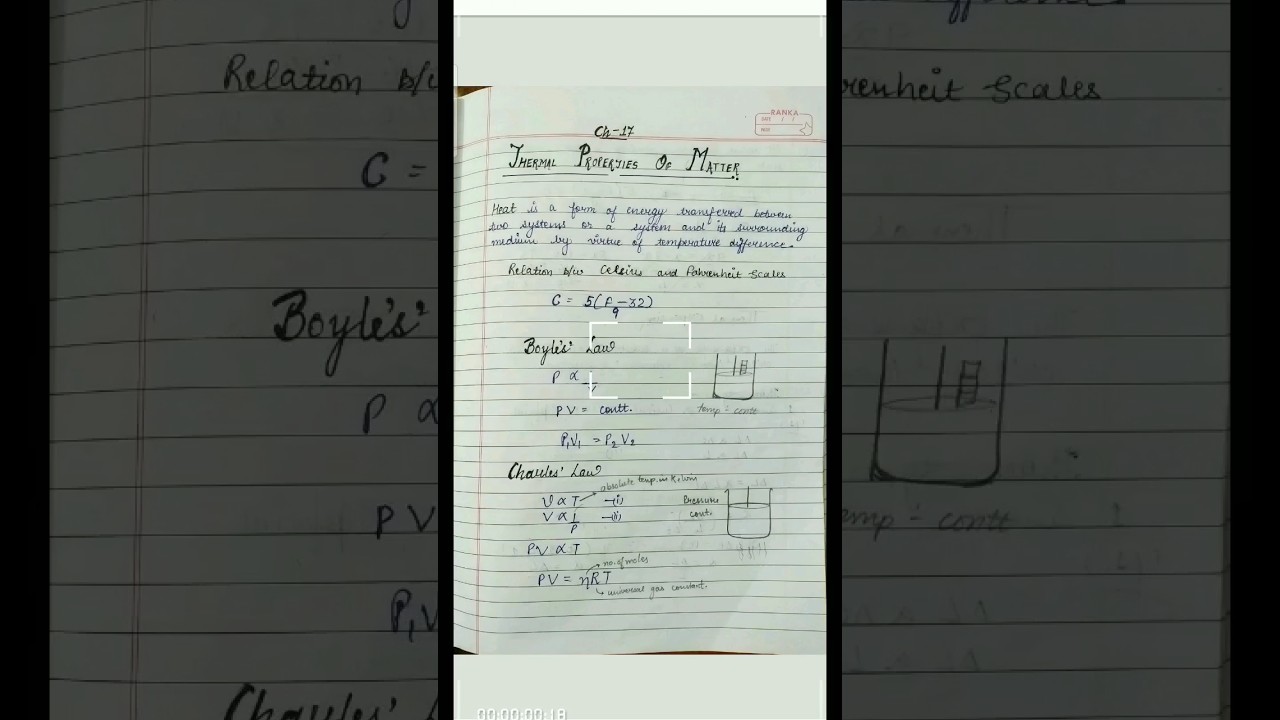 RANKA
DATE / /
PAGE
Ch-17
THERMAL PROPERTIES OF MATTER
Heat is a form of energy transferred between
two systems or a system and its surrounding
medium by virtue of temperature difference.
Relation b/w Celsius and Fahrenheit Scales
C = 5(F-32)
9
Boyle's' Law
P ∝ 1
V
PV = contt.
temp = contt
P₁V₁ = P₂V₂
Charles' Law
absolute temp. in Kelvin
V ∝ T -(i)
V ∝ 1 -(ii)
P
Pressure
cont.
PV ∝ T
no. of moles
PV = ηRT
universal gas constant.
00:00:00:18
Relation b/w
renheit Scales
C =
Boyle's'
P ∝
emp = contt
PV
P₁V
Charles'